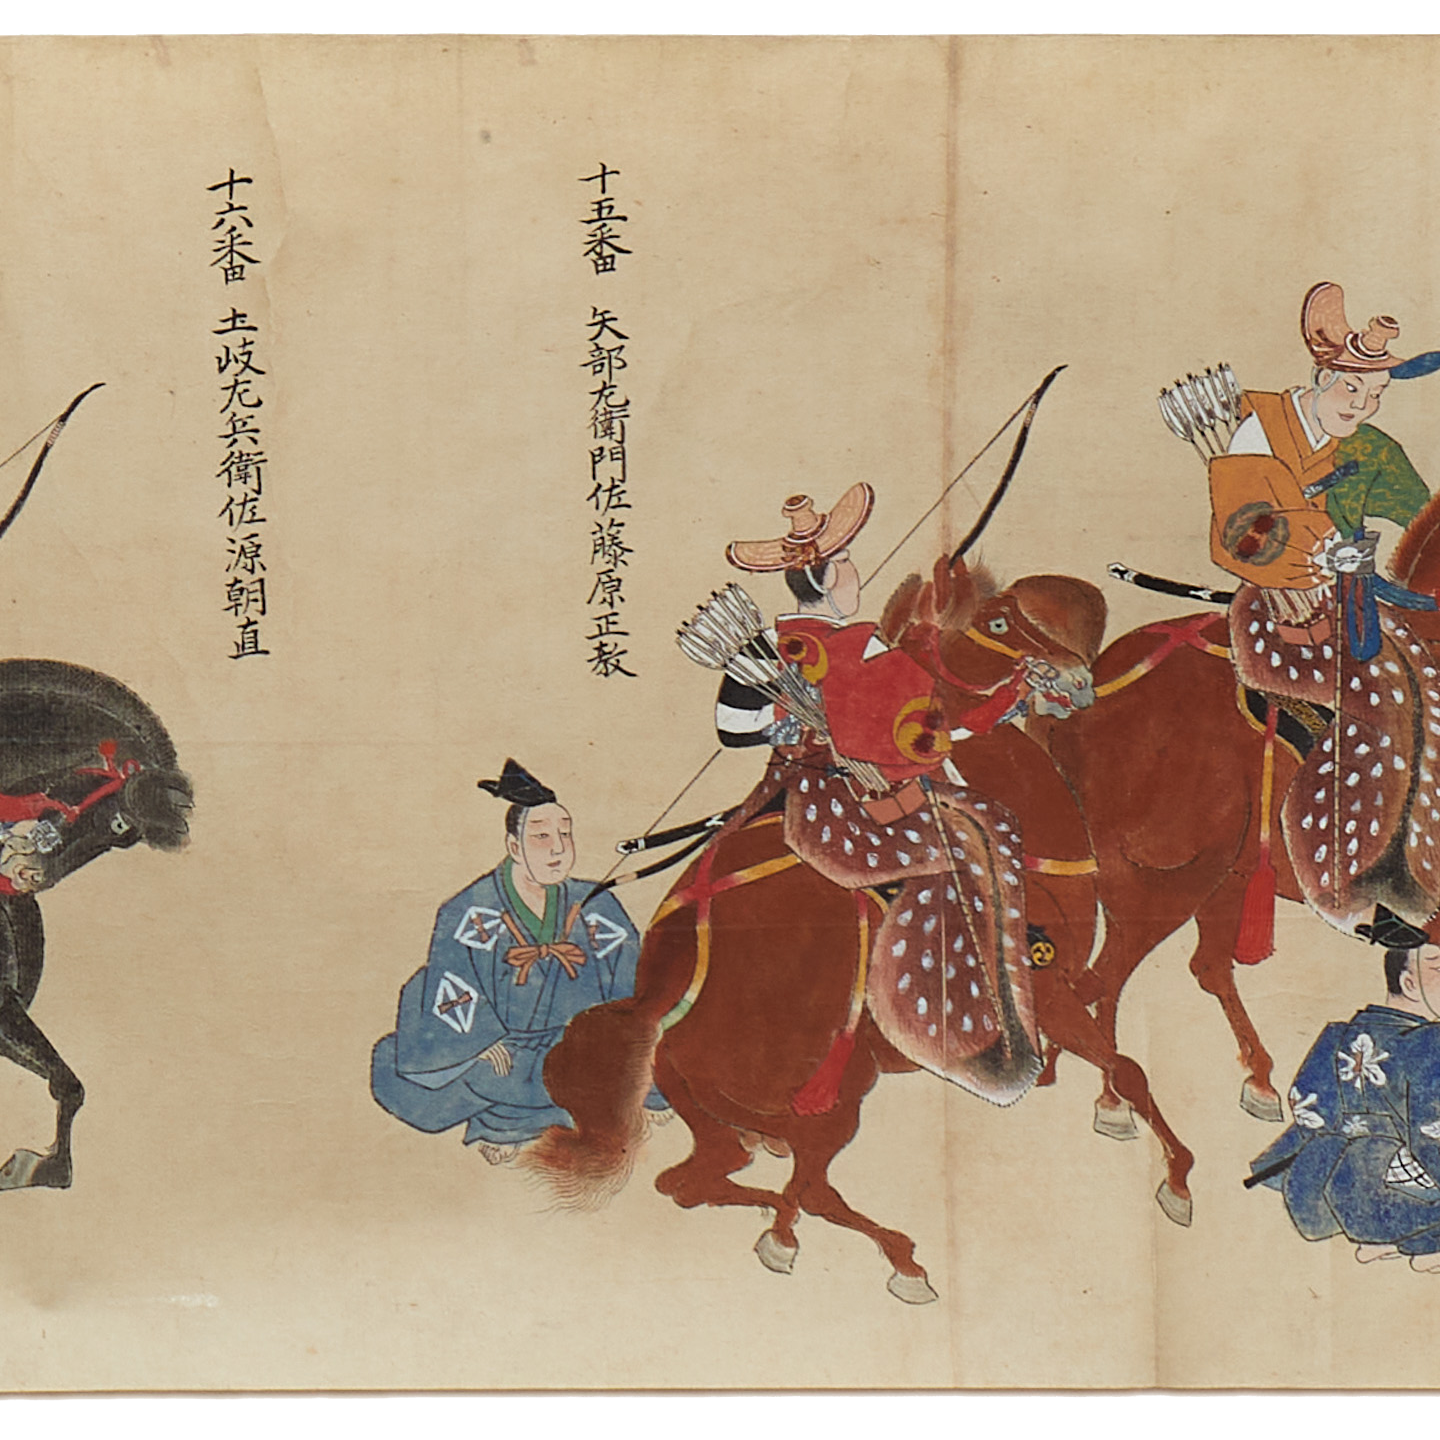 十五番 矢部左衛門佐藤原正教
十六番 土岐左兵衛佐源朝直